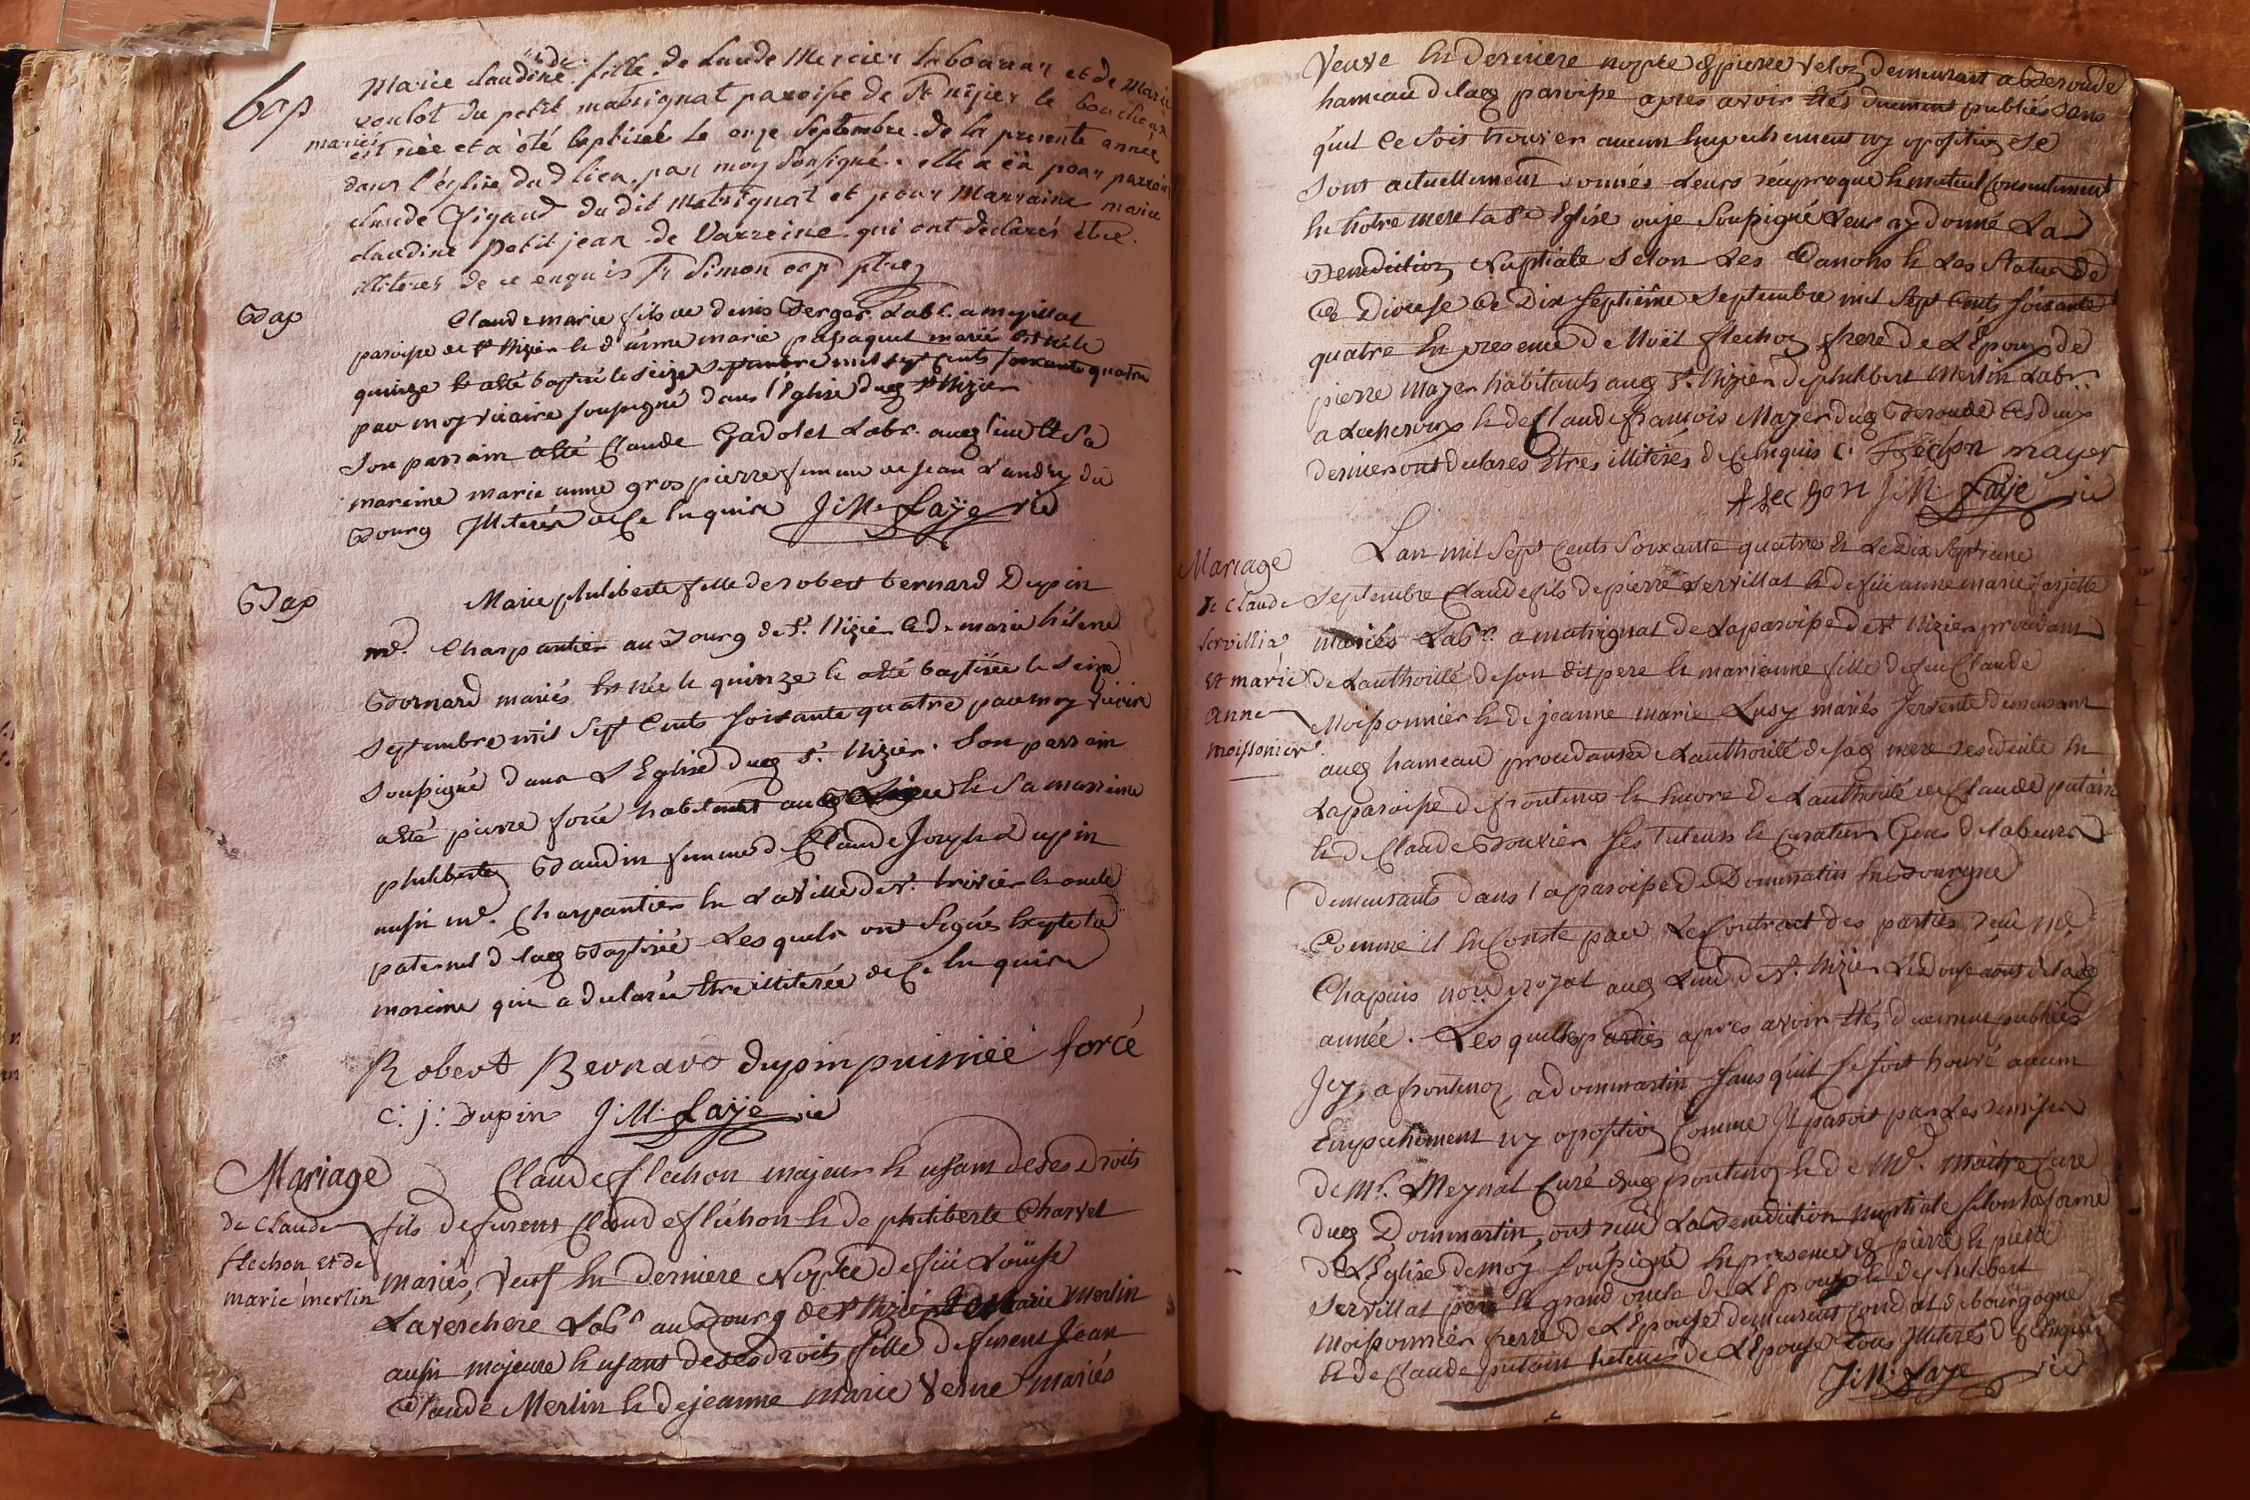 bap
Marie Claudine fille de Claude Mercier laboureur et de Marie
voulot du petit matrignat paroisse de St nizier le bouchoux
mariés
est née et à été baptisée le onze Septembre de la presente année
dans l'église dud lieu par moy soussigné. elle a eu pour parrein
claude Rigaud du dit Matrignat et pour Marraine marie
claudine petit jean de Varreine qui ont declarés être
illiteres de ce enquis fr Simon cap
Bap
Claude marie fils de denis Berger Labr. a
paroisse de st Nizier & d'anne marie passaquet mariés est né le
quinze & a été baptisé le seize septembre mil sept cents soixante quatre
par moy vicaire soussigné dans l'Eglise dudt st Nizier
Son parrain a été Claude Gadolet Labr. audt lieu & Sa
mareine marie anne gros pierre femme de jean Landry du
Bourg Illiterés de Ce Enquis J: M: Faÿe vic
Bap
Marie philiberte fille de robert bernard Dupin
md. Charpantier au Bourg de St. Nizier & de marie hélene
Bornard mariés est née le quinze & a été baptisée le seize
Septembre mil Sept Cents soixante quatre par moy vicaire
soussigné dans L'Eglise dudt St. Nizier. Son parrain
a été pierre forcé habitant audt & Sa marreine
philiberte Baudin femme de Claude Joseph Dupin
aussi md. Charpantier en La ville de St. trivier & oncle
paternel de ladt Baptisée Lesquels ont Signés Excepte la
mareine qui a declarée Etre illiterée de Ce Enquise
Robert Bernard dupin puisnée forcé
C: j: Dupin J: M: Faÿe vic
Mariage
de Claude
flechon et de
marie merlin
Claude flechon majeur & usant de ses Droits
fils de furent Claude fléchon & de philiberte Charvet
mariés, veuf En derniere Nopce de füe Loüise
Laverchere Labr au Bourg de St Nizier & Marie Merlin
aussi majeure & usant deses droits fille de furent Jean
Claude Merlin & de jeanne marie Verne mariés
Veuve En derniere nopce de pierre Veloz demeurant a Beroude
hameau de ladt paroisse apres avoir Etés duement publiés sans
qu'il Ce soit trouvé aucun Empechement ny oposition Se
Sont actuellement donnés Leurs réciproque & mutuel Consentement
En notre mere La Ste Eglise ou je Soussigné Leur ay donné La
Benediction Nuptiale Selon Les Canons & Les Statuts de
Ce Diocese Ce Dix Septième Septembre mil Sept Cents Soixante
quatre En presence de Noël flechon frere de L'Epoux de
pierre Mayer habitants audt St. Nizier de philibert Merlin Labr.
a Lecheroux & de Claude françois Mayer dudt Beroude Ces deux
derniers ont declarés Etres illitérés de Ce Enquis C: Flechon mayer
flechon J: M: Faÿe vic
Mariage
de Claude
Servillia
Et marie
Anne
Moissonier
L'an mil Sept Cents Soixante quatre & Le Dix Septieme
Septembre Claude fils de pierre Servillat & de füe anne marie
mariés Labr. a matrignat de La paroisse de St Nizier procedant
de L'authorité de son dit pere & marianne fille de feu Claude
Moissonnier & de jeanne marie Lusy mariés servente demeurant
audt hameau procedante de L'authorité de sadt mere residente En
La paroisse de frontenaz & Encore de L'authorité de Claude putain
& de Claude Bouvier Ses Tuteurs & Curateurs Gens de labeurs
demeurants dans la paroisse de Dommartin En Bourgne
Comme il En Conste par Le Contract des parties reçu Me
Chapuis nore royal audt Lieu de St. Nizier Le douze aout de lad
année. Lesquelles parties apres avoir Etés duement publiées
Icy, a frontenoz, a dommartin sans qu'il se soit trouvé aucun
Empechement ny oposition Comme Il paroit par Les remises
de Mr. Meynal Curé dudt frontenoz & de Mr. Maitre Curé
dudt Dommartin, ont reçu La Benediction nuptiale selon La forme
de L'Eglise de moy soussigné En presence de pierre & pierre
Servillat pere & grand oncle de L'Epoux & de philibert
Moissonnier frere de L'Epouse demeurent Condal de bourgogne
& de Claude putain tuteur de L'Epouse tous Illiterés de Ce Enquis
J: M: Faye vic